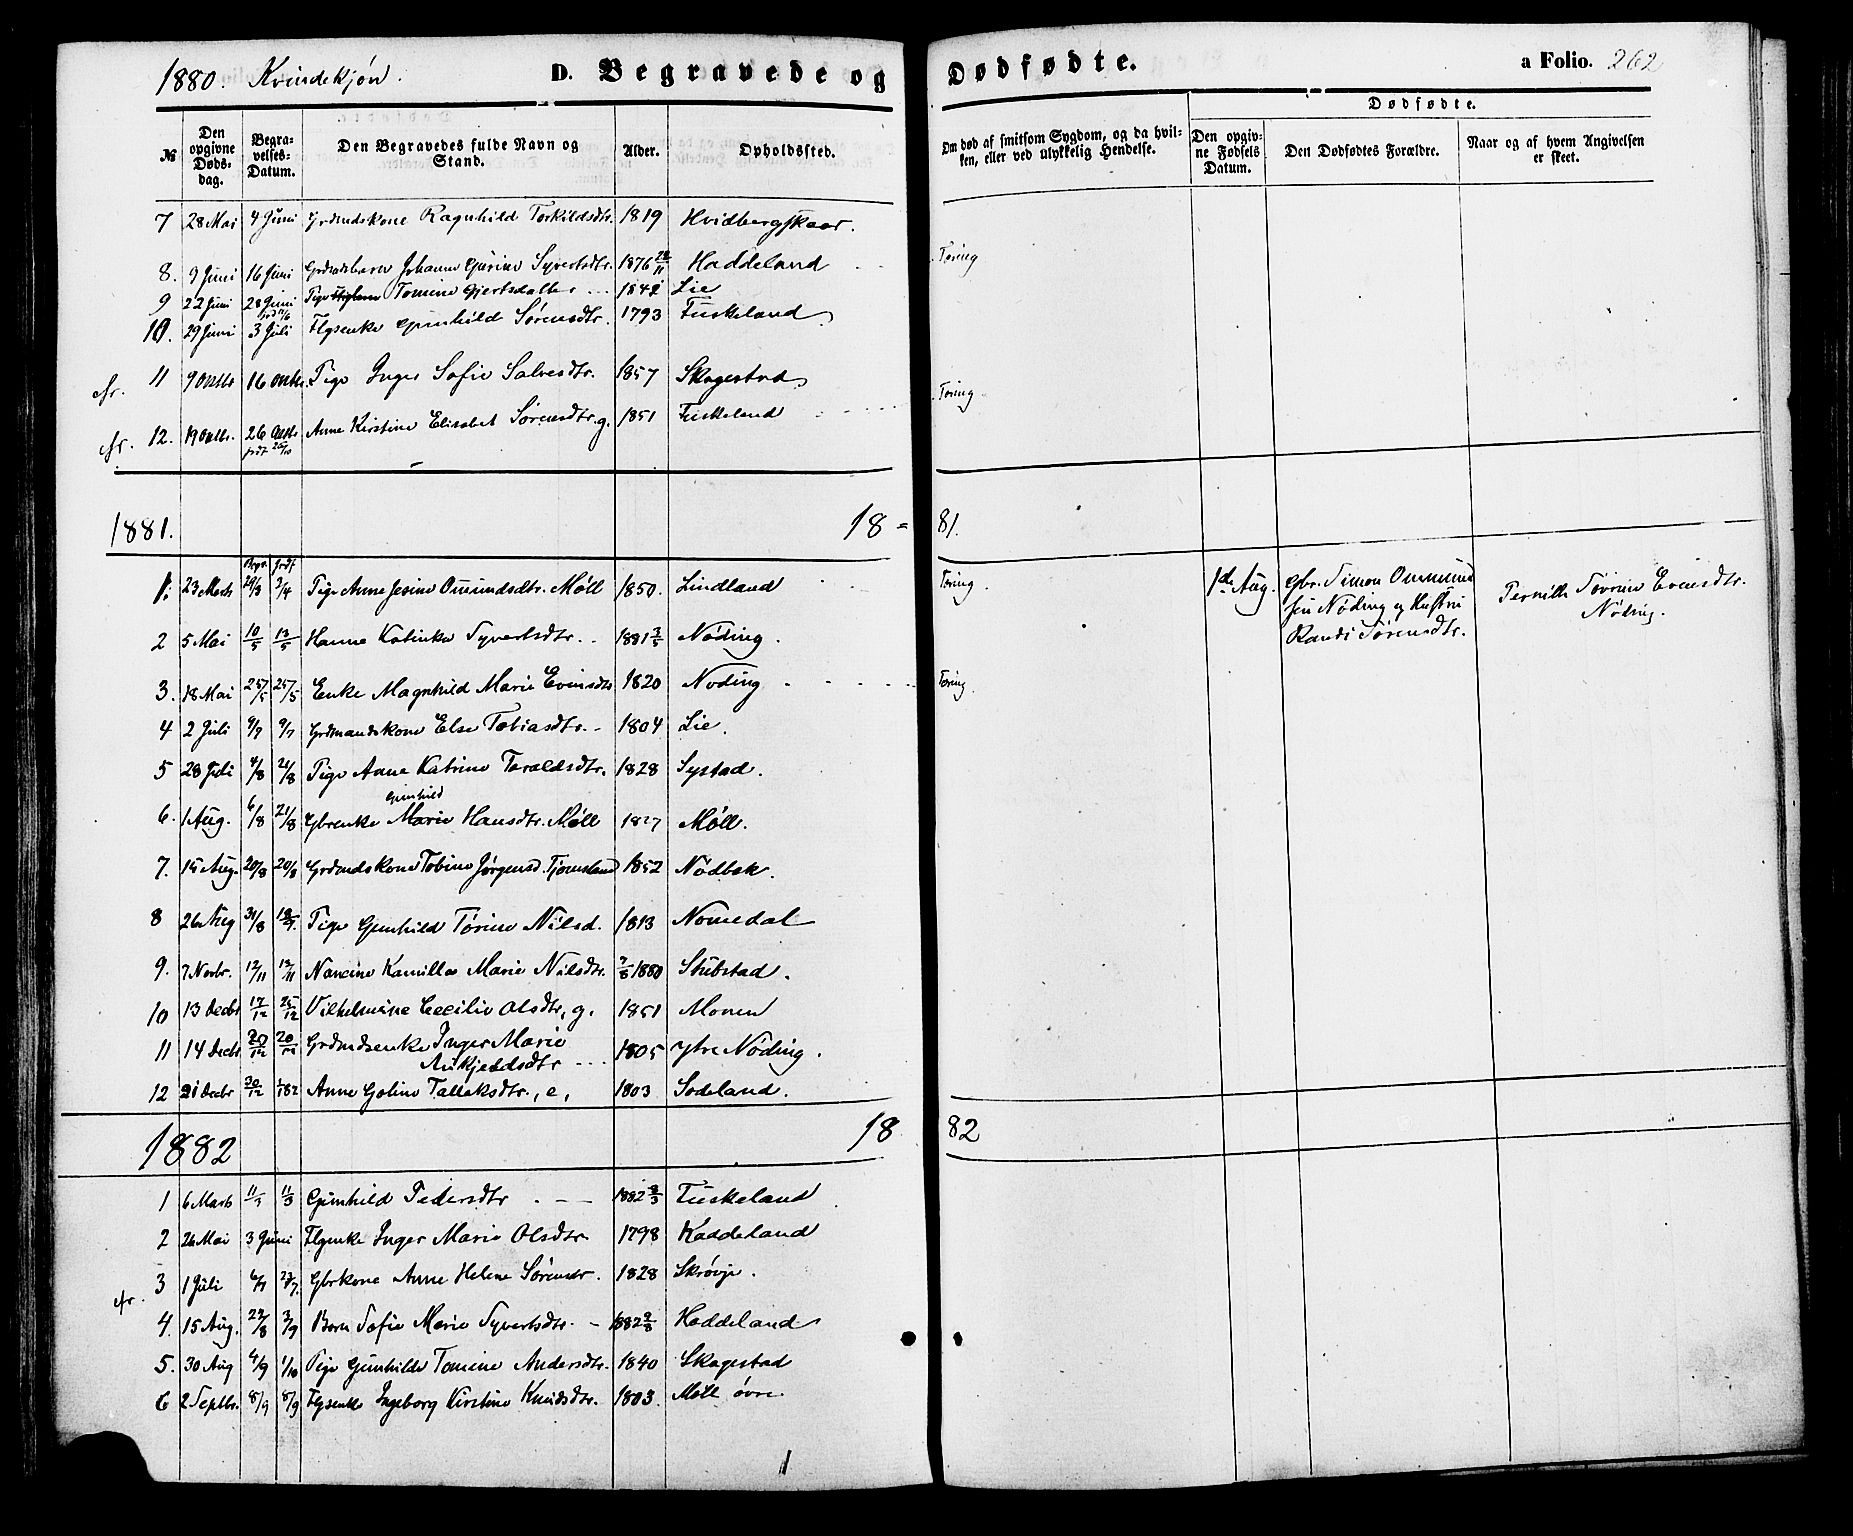 1880. Kvindekjøn. D. Begravede og Dødfødte. a Folio. 262
№ Den opgivne Dødsdag. Begravelses-Datum. Den Begravedes fulde Navn og Stand. Alder. Opholdssted. Om død af smitsom Sygdom, og da hvilken, eller ved ulykkelig Hendelse. Dødfødte. Den opgivne Fødsels Datum. Den Dødfødtes Forældre. Naar og af hvem Angivelsen er skeet.
7 28 Mai 4 Juni Grdmdskone Ragnhild Torkildsdtr. 1819 Hvidbergskaar.
8. 9 Juni 16 Juni Grdmdsbarn Johanne Gurine Syvertsdtr. 1876 Haddeland Tæring
9 22 Juni 28 Juni Pige Tomine Gjertsdatter 1842 Lie
10. 29 Juni 3 Juli Flgsenke Gunhild Sørensdtr. 1793 Fuskeland
cfr. 11 9 Oktbr 16 Oktbr. Pige Inger Sofie Salvesdtr. 1857 Skagestad Tæring
cfr. 12. 19 Oktbr. 26 Oktbr Anne Kirstine Elisabet Sørensdtr. g. 1851 Fuskeland
1881. 18 = 81.
Begr. Jrdf
1. 23 Marts 29/3 2/4 Pige Anne Jesine Omundsdtr. Møll 1850. Lindland Tæring. 1de Aug. Gbr. Simon Ommundsen Nøding og Hustru Randi Sørensdtr. Pernille Tovrine Evensdtr. Nøding.
2 5 Mai 10/5 13/5 Hanne Katinka Syvertsdtr. 1881 3/5 Nøding.
3. 18 Mai 25/5 25/5 Enke Magnhild Marie Evensdtr 1820 Nøding Tæring.
4 2 Juli 9/7 9/7 Grdmandskone Else Tobiasdtr. 1804 Lie.
5 28 Juli 4/8 21/8 Pige Anne Katrine Toraldsdtr. 1828 Systad.
Gunhild
6. 1 Aug. 6/8 21/8 Gbrenke Marie Hansdtr. Møll 1827 Møll.
7. 15 Aug. 20/8 20/8 Grdmdskone Tobine Jørgensd. Tjomsland 1852 Nødbek.
8 26 Aug 31/8 18/9. Pige Gunhild Tørine Nilsd. 1813 Nomedal
9. 7 Novbr. 12/11 12/11 Nancine Kamilla Marie Nilsdtr. 7/8 1880 Stubstad.
10 13 Decbr 17/12 25/12 Vilhelmine Cecilie Olsdtr. g. 1851 Monen
11 14 Decbr 20/12 20/12 Grdmdsenke Inger Marie
Ankjeldsdtr 1805 ytre Nøding.
12 21 Decbr 30/12 Anne Goline Tallaksdtr., e, 1803 Sodeland.
1882 18 82
1 6 Marts 11/3 11/3 Gunhild Pedersdtr 1882 3/3 Fuskeland
2 26 Mai 3 Juni Flgenke Inger Marie Olsdtr. 1798 Haddeland
cfr. 3 1 Juli 6/7 Gbrkone Anne Helene Sørensdr. 1828 Skrøvje.
4. 15 Aug. 22/8 3/9 Barn Sofie Marie Syvertsdtr. 1882 Haddeland
5. 30 Aug 4/9 1/10 Pige Gunhilde Tomine Andersdtr. 1840 Skagestad
6 2 Septbr. 8/9 8/9 Flgsenke Ingeborg Kirstine Knudsdtr. 1803. Møll øvre